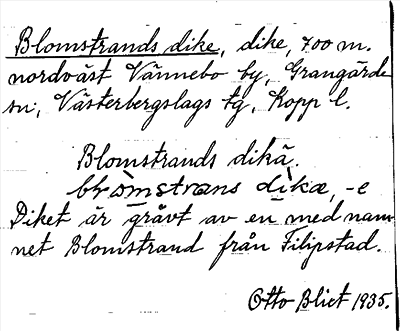 Blomstrands dike, dike, 700 m.
nordväst Vännebo by, Grangärde
sn, Västerbergslags tg, Kopp l.
Blomstrands dikä.
blòmstrans dìkæ, -e
Diket är grävt av en med nam-
net Blomstrand från Filipstad.
Otto Blixt 1935.